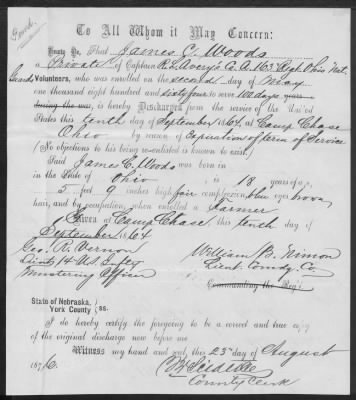 To All Whom it May Concern:
Know Ye, That James C. Woods
a Private of Captain R. S. Avery's Co. A. 163 Regt Ohio Nat.
Guard Volunteers, who was enrolled on the second day of May
one thousand eight hundred and sixty four to serve 100 days years
during the war, is hereby Discharged from the service of the United
States this tenth day of September 1864, at Camp Chase
Ohio by reason of Expiration of term of Service
(No objections to his being re-enlisted is known to exist.)
Said James C. Woods was born in
in the State of Ohio is 18 years of age,
5 feet 9 inches high, fair complexion, blue eyes brown
hair, and by occupation, when enrolled a Farmer
Given at Camp Chase, this tenth day of
September 1864
Geo. R. Vernon
Lieut 14 U.S. Infty
Mustering Officer
William B.
Lieut. Comdg. Co
Commanding the Reg't
State of Nebraska,
York County ss.
I do hereby certify the foregoing to be a correct and true copy
of the original discharge now before me
Witness my hand and seal this 23d day of August
1876.
County Clerk